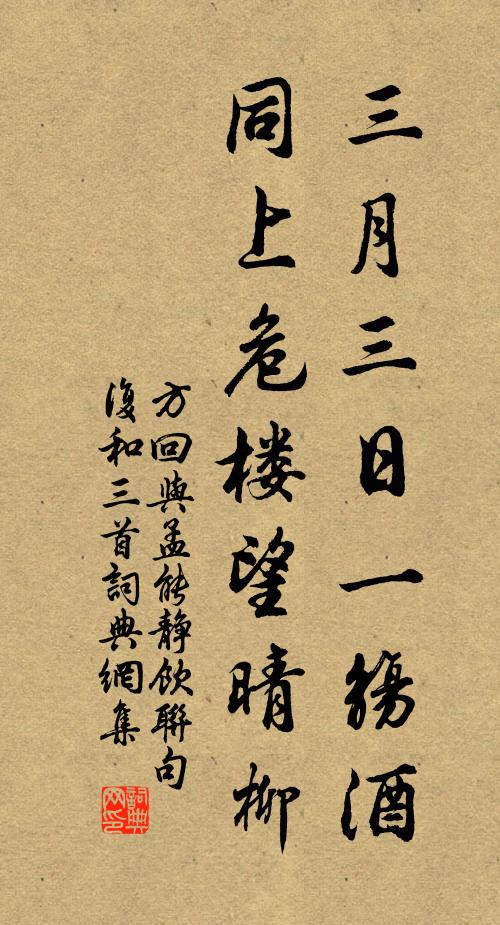 三月三日一觴酒
同上危楼望晴柳
方回與孟能静飲聯句
復和三首詞典網集
詞典网印